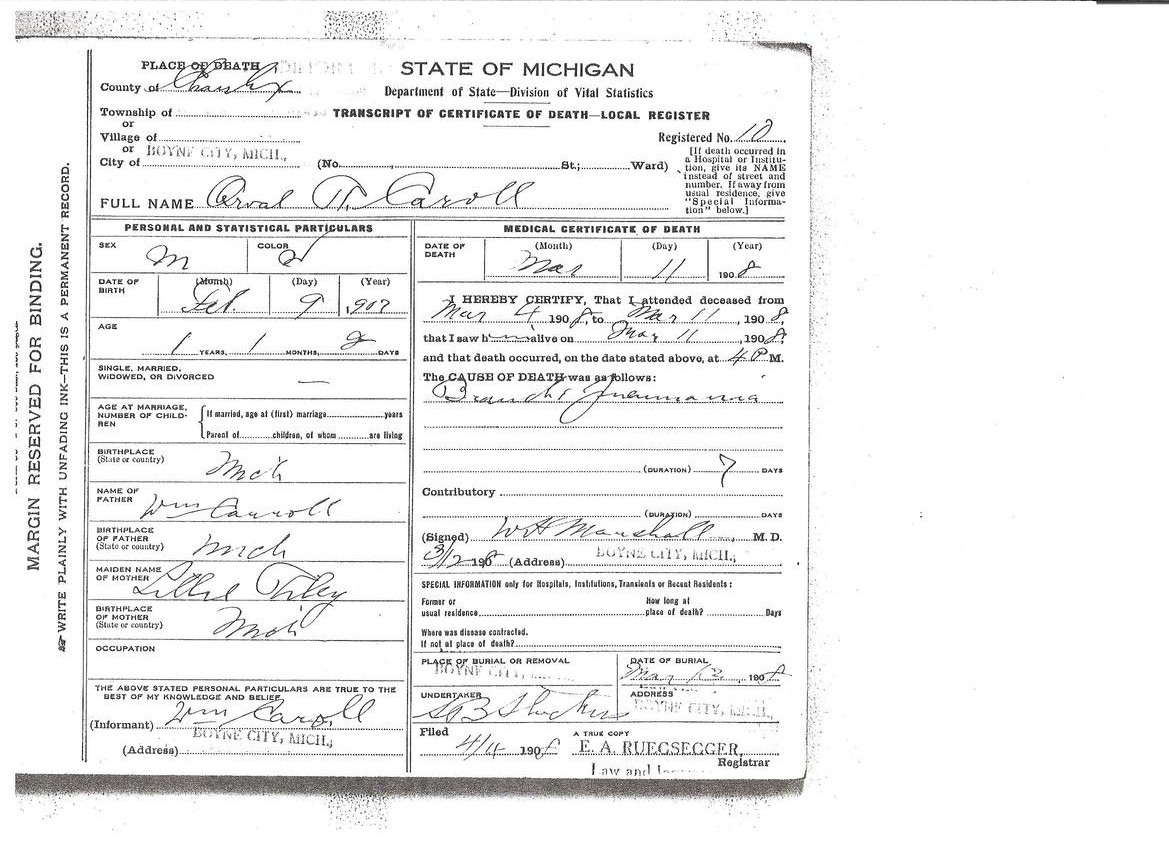 PLACE OF DEATH
County of Charlevoix
Township of
or
Village of
or
City of BOYNE CITY, MICH.,
STATE OF MICHIGAN
Department of State—Division of Vital Statistics
TRANSCRIPT OF CERTIFICATE OF DEATH—LOCAL REGISTER
Registered No. 10
(No. St.; Ward)
[If death occurred in
a Hospital or Institu-
tion, give its NAME
instead of street and
number. If away from
usual residence, give
"Special Informa-
tion" below.]
FULL NAME Orval Caroll
MARGIN RESERVED FOR BINDING.
WRITE PLAINLY WITH UNFADING INK—THIS IS A PERMANENT RECORD.
PERSONAL AND STATISTICAL PARTICULARS
SEX M
COLOR W
DATE OF
BIRTH
(Month) (Day) (Year)
Feb. 9 1907
AGE
1 YEARS, 1 MONTHS, 2 DAYS
SINGLE, MARRIED,
WIDOWED, OR DIVORCED —
AGE AT MARRIAGE,
NUMBER OF CHILD-
REN
If married, age at (first) marriage years
Parent of children, of whom are living
BIRTHPLACE
(State or country) Mich
NAME OF
FATHER Wm Carroll
BIRTHPLACE
OF FATHER
(State or country) Mich
MAIDEN NAME
OF MOTHER Lillie
BIRTHPLACE
OF MOTHER
(State or country) Mich
OCCUPATION
THE ABOVE STATED PERSONAL PARTICULARS ARE TRUE TO THE
BEST OF MY KNOWLEDGE AND BELIEF
(Informant) Wm Caroll
(Address) BOYNE CITY, MICH.,
MEDICAL CERTIFICATE OF DEATH
DATE OF
DEATH
(Month) (Day) (Year)
Mar 11 1908
I HEREBY CERTIFY, That I attended deceased from
Mar 4 1908, to Mar 11, 1908,
that I saw him alive on Mar 11, 1908,
and that death occurred, on the date stated above, at 4 P M.
The CAUSE OF DEATH was as follows:
Pneumonia
(DURATION) 7 DAYS
Contributory
(DURATION) DAYS
(Signed) W H Marshall, M. D.
3/12 1908 (Address) BOYNE CITY, MICH.,
SPECIAL INFORMATION only for Hospitals, Institutions, Transients or Recent Residents:
Former or
usual residence
How long at
place of death? Days
Where was disease contracted,
if not at place of death?
PLACE OF BURIAL OR REMOVAL
BOYNE CITY,
DATE OF BURIAL
Mar 1908
UNDERTAKER
ADDRESS
BOYNE CITY, MICH.,
Filed 1908
A TRUE COPY
E. A. RUEGSEGGER,
Registrar
Law and